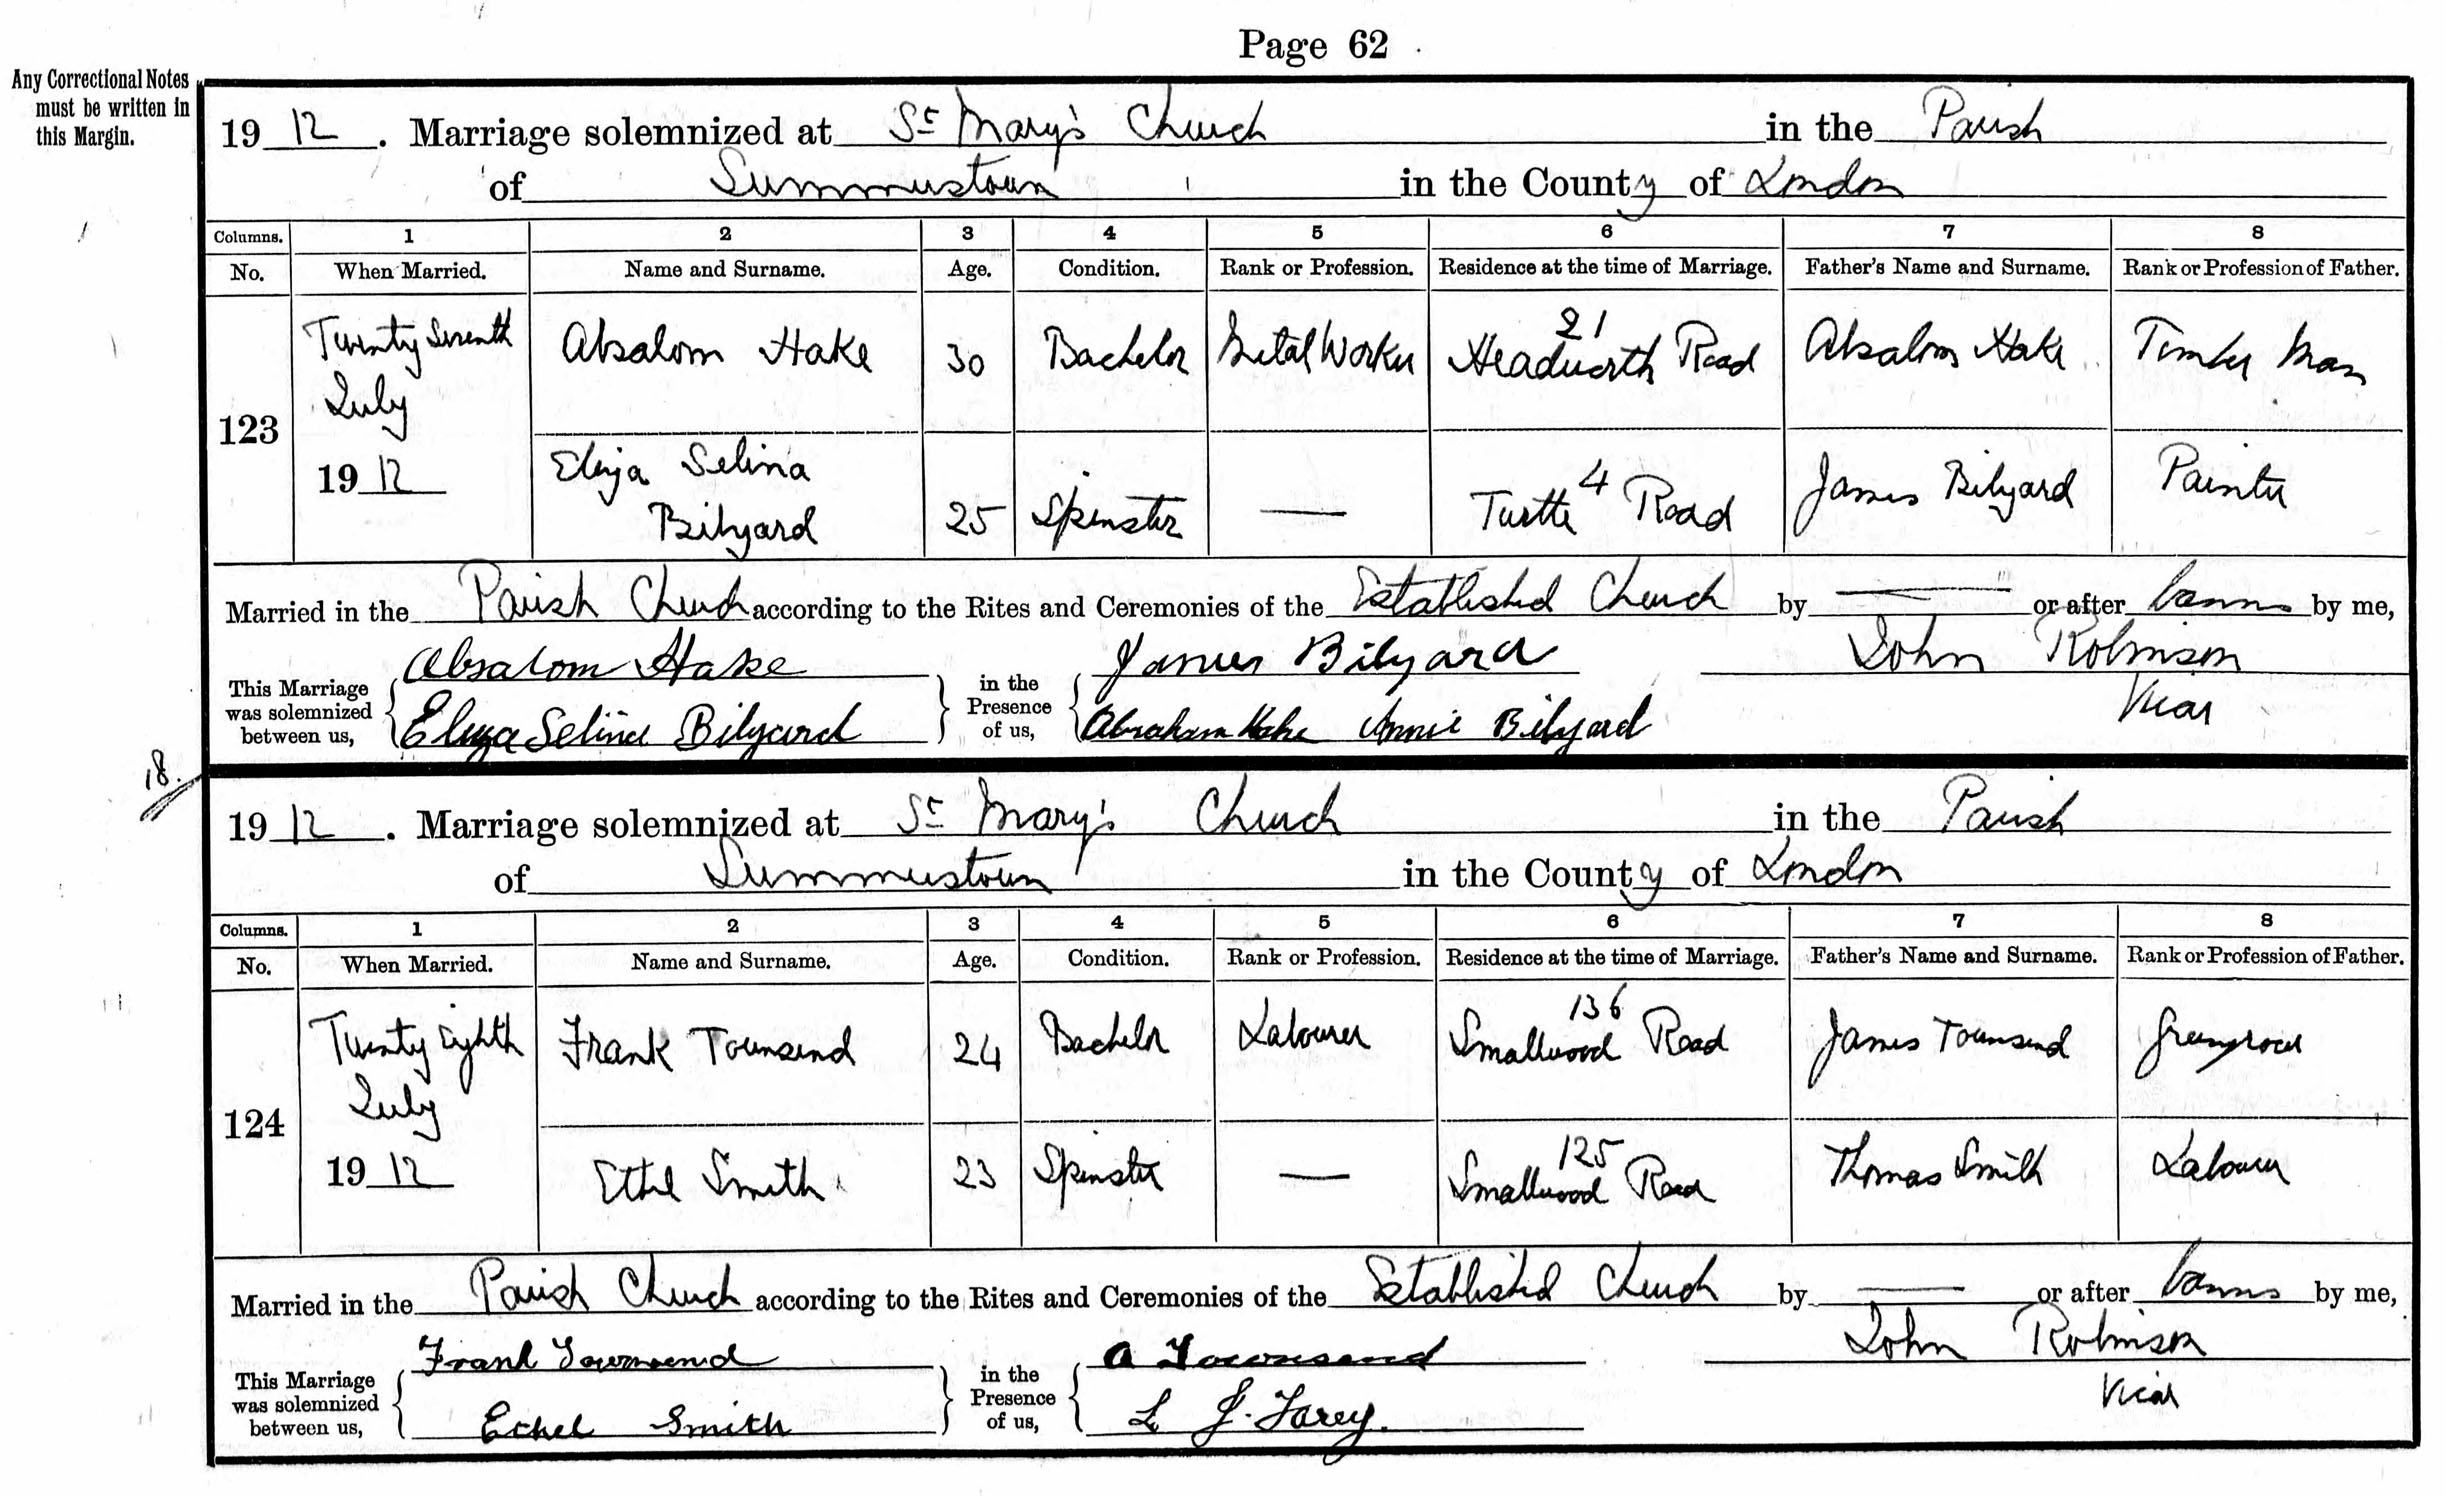 Page 62
Any Correctional Notes
must be written in
this Margin.
1912. Marriage solemnized at St Mary's Church in the Parish
of Summerstown in the County of London
Columns. 1 2 3 4 5 6 7 8
No. When Married. Name and Surname. Age. Condition. Rank or Profession. Residence at the time of Marriage. Father's Name and Surname. Rank or Profession of Father.
123 Twenty Seventh July 1912 Absalom Hake 30 Bachelor Metal Worker 21 Headworth Road Absalom Hake Timber Man
Eliza Selina Bilyard 25 Spinster — 4 Turtle Road James Bilyard Painter
Married in the Parish Church according to the Rites and Ceremonies of the Established Church by — or after banns by me,
This Marriage was solemnized between us, Absalom Hake in the Presence of us, James Bilyard John Robinson
Eliza Selina Bilyard Abraham Hake Annie Bilyard Vicar
18.
1912. Marriage solemnized at St Mary's Church in the Parish
of Summerstown in the County of London
Columns. 1 2 3 4 5 6 7 8
No. When Married. Name and Surname. Age. Condition. Rank or Profession. Residence at the time of Marriage. Father's Name and Surname. Rank or Profession of Father.
124 Twenty Eighth July 1912 Frank Townsend 24 Bachelor Labourer 136 Smallwood Road James Townsend Greengrocer
Ethel Smith 23 Spinster — 125 Smallwood Road Thomas Smith Labourer
Married in the Parish Church according to the Rites and Ceremonies of the Established Church by — or after banns by me,
This Marriage was solemnized between us, Frank Townsend in the Presence of us, A Townsend John Robinson
Ethel Smith L J. Farey. Vicar